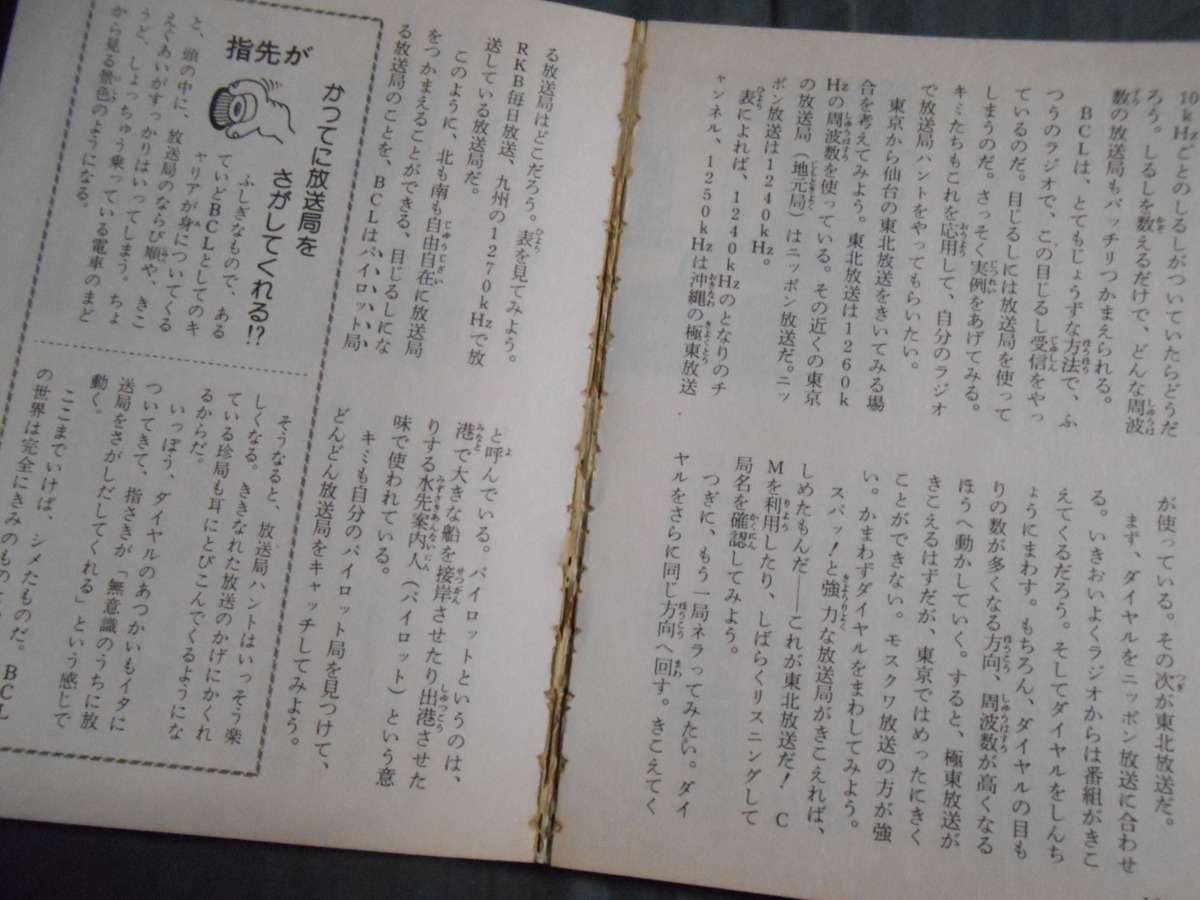 10kHzごとのしるしがついていたらどうだ
ろう。しるしを数えるだけで、どんな周波
数の放送局もバッチリつかまえられる。
BCLは、とてもじょうずな方法で、ふ
つうのラジオで、この目じるし受信をやっ
ているのだ。目じるしには放送局を使って
しまうのだ。さっそく実例をあげてみる。
キミたちもこれを応用して、自分のラジオ
で放送局ハントをやってもらいたい。
東京から仙台の東北放送をきいてみる場
合を考えてみよう。東北放送は1260k
Hzの周波数を使っている。その近くの東京
の放送局（地元局）はニッポン放送だ。ニッ
ポン放送は1240kHz。
表によれば、1240kHzのとなりのチ
ャンネル、1250kHzは沖縄の極東放送
が使っている。その次が東北放送だ。
まず、ダイヤルをニッポン放送に合わせ
る。いきおいよくラジオからは番組がきこ
えてくるだろう。そしてダイヤルをしんち
ょうにまわす。もちろん、ダイヤルの目も
りの数が多くなる方向、周波数が高くなる
ほうへ動かしていく。すると、極東放送が
きこえるはずだが、東京ではめったにきく
ことができない。モスクワ放送の方が強
い。かまわずダイヤルをまわしてみよう。
スパッ！と強力な放送局がきこえれば、
しめたもんだ――これが東北放送だ！C
Mを利用したり、しばらくリスニングして
局名を確認してみよう。
つぎに、もう一局ネラってみたい。ダイ
ヤルをさらに同じ方向へ回す。きこえてく
る放送局はどこだろう。表を見てみよう。
RKB毎日放送、九州の1270kHzで放
送している放送局だ。
このように、北も南も自由自在に放送局
をつかまえることができる、目じるしにな
る放送局のことを、BCLはパイロット局
と呼んでいる。パイロットというのは、
港で大きな船を接岸させたり出港させた
りする水先案内人（パイロット）という意
味で使われている。
キミも自分のパイロット局を見つけて、
どんどん放送局をキャッチしてみよう。
指先が
かってに放送局を
さがしてくれる!?
ふしぎなもので、ある
ていどBCLとしてのキ
ャリアが身についてくる
と、頭の中に、放送局のならび順や、きこ
えぐあいがすっかりはいってしまう。ちょ
うど、しょっちゅう乗っている電車のまど
から見る景色のようになる。
そうなると、放送局ハントはいっそう楽
しくなる。ききなれた放送のかげにかくれ
ている珍局も耳にとびこんでくるようにな
るからだ。
いっぽう、ダイヤルのあつかいもイタに
ついてきて、指さきが「無意識のうちに放
送局をさがしだしてくれる」という感じで
動く。
ここまでいけば、シメたものだ。BCL
の世界は完全にきみのもの